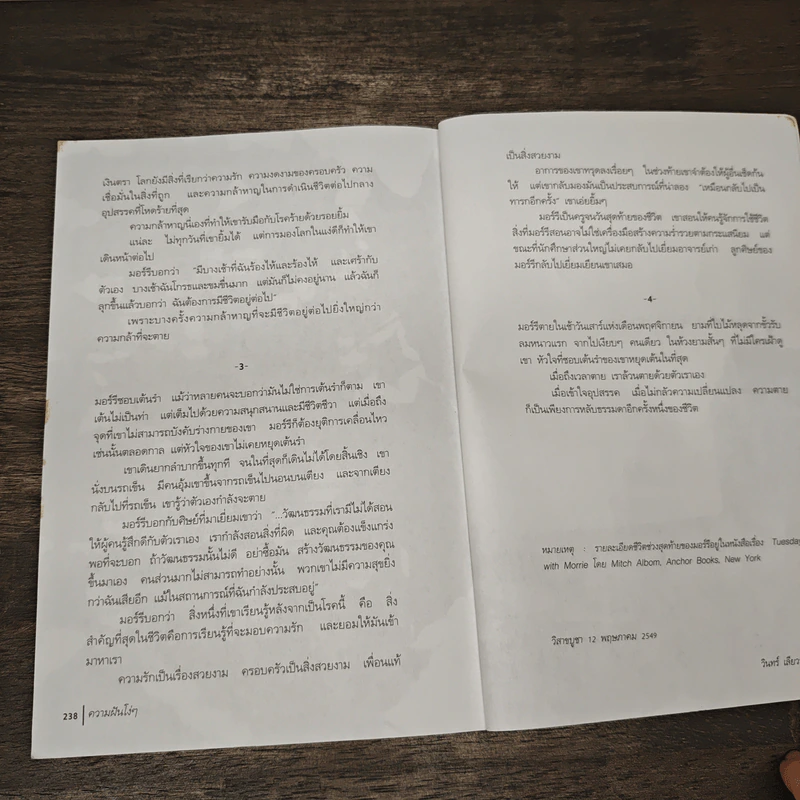 เงินตรา โลกยังมีสิ่งที่เรียกว่าความรัก ความงดงามของครอบครัว ความ
เชื่อมั่นในสิ่งที่ถูก และความกล้าหาญในการดำเนินชีวิตต่อไปกลาง
อุปสรรคที่โหดร้ายที่สุด
ความกล้าหาญนี่เองที่ทำให้เขารับมือกับโรคร้ายด้วยรอยยิ้ม
แน่ละ ไม่ทุกวันที่เขายิ้มได้ แต่การมองโลกในแง่ดีก็ทำให้เขา
เดินหน้าต่อไป
มอร์รีบอกว่า "มีบางเช้าที่ฉันร้องไห้และร้องไห้ และเศร้ากับ
ตัวเอง บางเช้าฉันโกรธและขมขื่นมาก แต่มันก็ไม่คงอยู่นาน แล้วฉันก็
ลุกขึ้นแล้วบอกว่า ฉันต้องการมีชีวิตอยู่ต่อไป"
เพราะบางครั้งความกล้าหาญที่จะมีชีวิตอยู่ต่อไปยิ่งใหญ่กว่า
ความกล้าที่จะตาย
-3-
มอร์รีชอบเต้นรำ แม้ว่าหลายคนจะบอกว่ามันไม่ใช่การเต้นรำก็ตาม เขา
เต้นไม่เป็นท่า แต่เต็มไปด้วยความสนุกสนานและมีชีวิตชีวา แต่เมื่อถึง
จุดที่เขาไม่สามารถบังคับร่างกายของเขา มอร์รีก็ต้องยุติการเคลื่อนไหว
เช่นนั้นตลอดกาล แต่หัวใจของเขาไม่เคยหยุดเต้นรำ
เขาเดินยากลำบากขึ้นทุกที จนในที่สุดก็เดินไม่ได้โดยสิ้นเชิง เขา
นั่งบนรถเข็น มีคนอุ้มเขาขึ้นจากรถเข็นไปนอนบนเตียง และจากเตียง
กลับไปที่รถเข็น เขารู้ว่าตัวเองกำลังจะตาย
มอร์รีบอกกับศิษย์ที่มาเยี่ยมเขาว่า "...วัฒนธรรมที่เรามีไม่ได้สอน
ให้ผู้คนรู้สึกดีกับตัวเราเอง เรากำลังสอนสิ่งที่ผิด และคุณต้องแข็งแกร่ง
พอที่จะบอก ถ้าวัฒนธรรมนั้นไม่ดี อย่าซื้อมัน สร้างวัฒนธรรมของคุณ
ขึ้นมาเอง คนส่วนมากไม่สามารถทำอย่างนั้น พวกเขาไม่มีความสุขยิ่ง
กว่าฉันเสียอีก แม้ในสถานการณ์ที่ฉันกำลังประสบอยู่"
มอร์รีบอกว่า สิ่งหนึ่งที่เขาเรียนรู้หลังจากเป็นโรคนี้ คือ สิ่ง
สำคัญที่สุดในชีวิตคือการเรียนรู้ที่จะมอบความรัก และยอมให้มันเข้า
มาหาเรา
ความรักเป็นเรื่องสวยงาม ครอบครัวเป็นสิ่งสวยงาม เพื่อนแท้
238 ความฝันโง่ๆ
เป็นสิ่งสวยงาม
อาการของเขาทรุดลงเรื่อยๆ ในช่วงท้ายเขาจำต้องให้ผู้อื่นเช็ดก้น
ให้ แต่เขากลับมองมันเป็นประสบการณ์ที่น่าลอง "เหมือนกลับไปเป็น
ทารกอีกครั้ง" เขาเอ่ยยิ้มๆ
มอร์รีเป็นครูจนวันสุดท้ายของชีวิต เขาสอนให้คนรู้จักการใช้ชีวิต
สิ่งที่มอร์รีสอนอาจไม่ใช่เครื่องมือสร้างความร่ำรวยตามกระแสนิยม แต่
ขณะที่นักศึกษาส่วนใหญ่ไม่เคยกลับไปเยี่ยมอาจารย์เก่า ลูกศิษย์ของ
มอร์รีกลับไปเยี่ยมเยียนเขาเสมอ
-4-
มอร์รีตายในเช้าวันเสาร์แห่งเดือนพฤศจิกายน ยามที่ใบไม้หลุดจากขั้วรับ
ลมหนาวแรก จากไปเงียบๆ คนเดียว ในห้วงยามสั้นๆ ที่ไม่มีใครเฝ้าดู
เขา หัวใจที่ชอบเต้นรำของเขาหยุดเต้นในที่สุด
เมื่อถึงเวลาตาย เราล้วนตายด้วยตัวเราเอง
เมื่อเข้าใจอุปสรรค เมื่อไม่กลัวความเปลี่ยนแปลง ความตาย
ก็เป็นเพียงการหลับธรรมดาอีกครั้งหนึ่งของชีวิต
หมายเหตุ : รายละเอียดชีวิตช่วงสุดท้ายของมอร์รีอยู่ในหนังสือเรื่อง Tuesday
with Morrie โดย Mitch Albom, Anchor Books, New York
วิสาขบูชา 12 พฤษภาคม 2549
วินทร์ เลียว